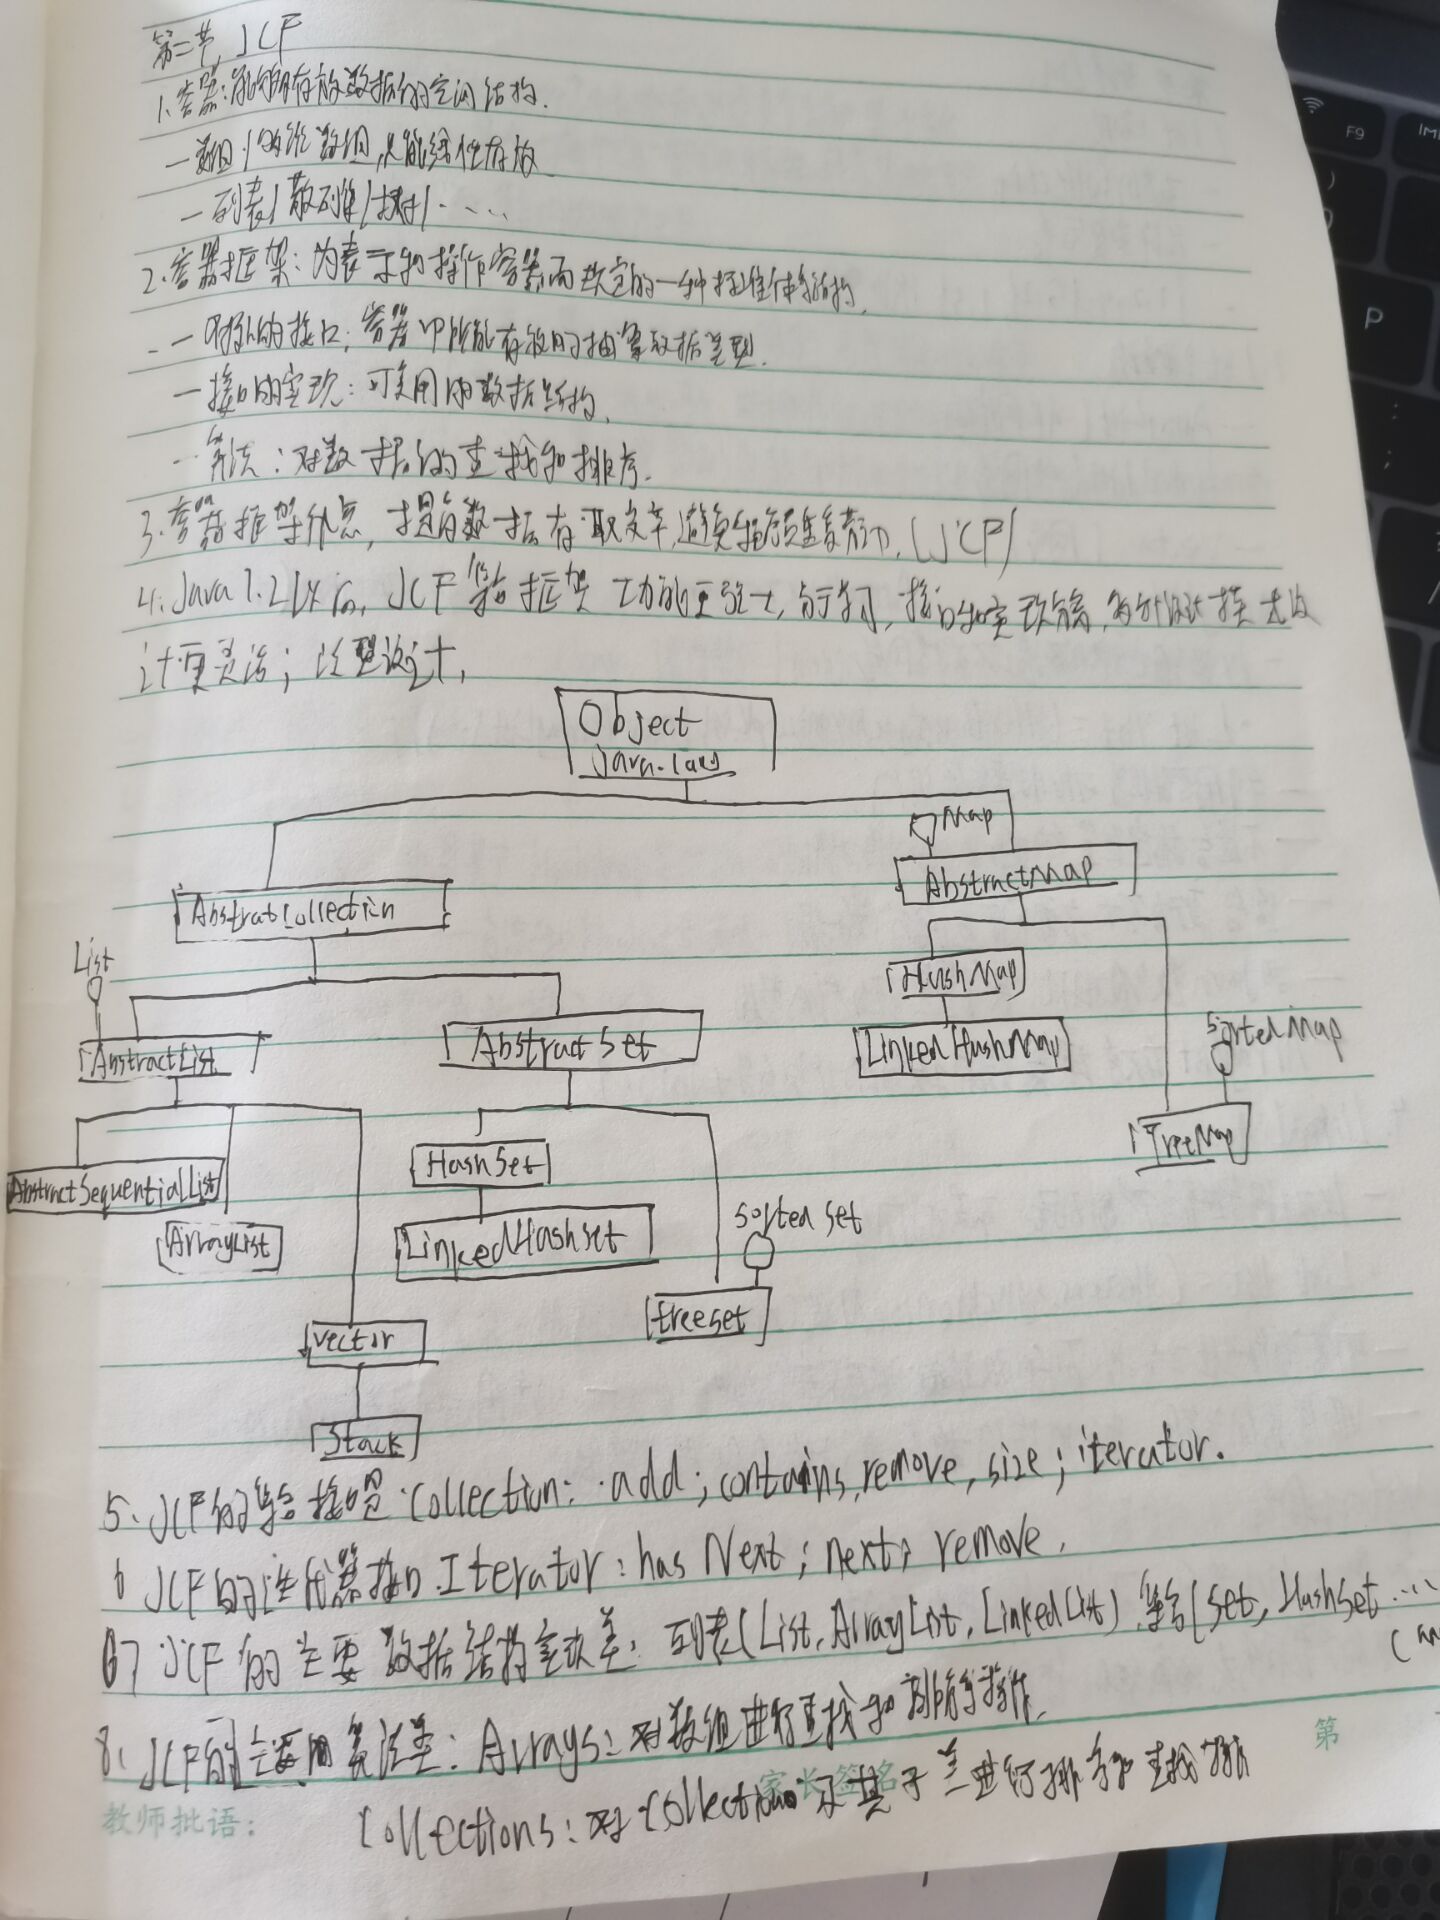 第二节 JCF
1.容器:能够存放数据的空间结构.
一数组/多维数组,只能线性存放
一列表/散列集/树/.....
2.容器框架:为表示和操作容器而规定的一种标准体系结构.
一对外的接口:容器中所能存放的抽象数据类型.
一接口的实现:可复用的数据结构.
一算法:对数据的查找和排序.
3.容器框架优点,提高数据存取效率,避免程序员重复劳动.(JCF)
4.Java 1.2以后,JCF集合框架 功能更强大,易于学习,接口和实现分离,多种设计模式设
计更灵活;泛型设计,
Object
java.lang
Map
AbstractMap
AbstratCollection
List
HashMap
LinkedHashMap
SortedMap
AbstractList
AbstractSet
TreeMap
HashSet
AbstractSequentialList
ArrayList
LinkedHashset
Sorted set
treeset
vector
Stack
5、JCF的集合接口是Collection: add;contains,remove,size;iterator.
6 JCF的迭代器接口Iterator:has Next;next;remove.
7 JCF的主要数据结构实现类:列表(List,ArrayList,LinkedList).集合(set,HashSet...
8、JCF的主要的算法类:Arrays:对数组进行查找和排序等操作.
Collections:对Collection及其子类进行排序和查找操作
家长签名
教师批语:
第